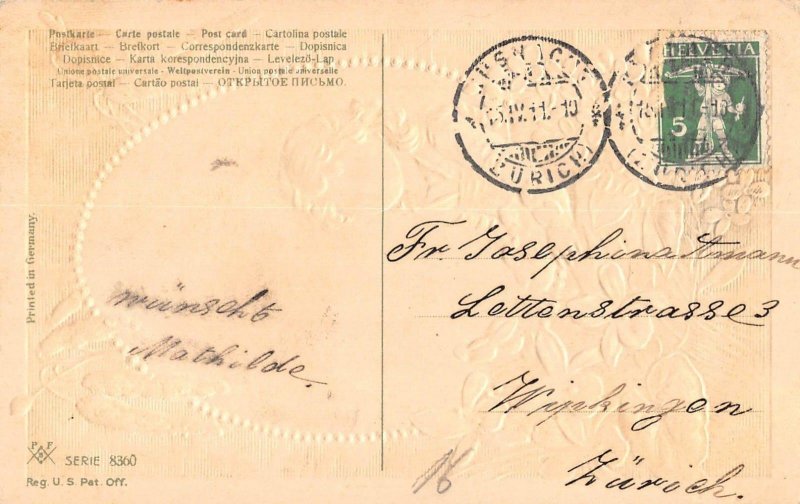 Postkarte — Carte postale — Post card — Cartolina postale
Briefkaart — Brefkort — Correspondenzkarte — Dopisnica
Dopisnice — Karta korespondencyjna — Levelező-Lap
Unione postale universale - Weltpostverein - Union postale universelle
Tarjeta postal — Cartão postal — ОТКРЫТОЕ ПИСЬМО.
(ZÜRICH)
HELVETIA
5
Printed in Germany.
wünscht
Mathilde.
Fr. Josephina Ammann
Lettenstrasse 3
Wipkingen
Zürich.
P F
SERIE 8360
Reg. U. S. Pat. Off.
16